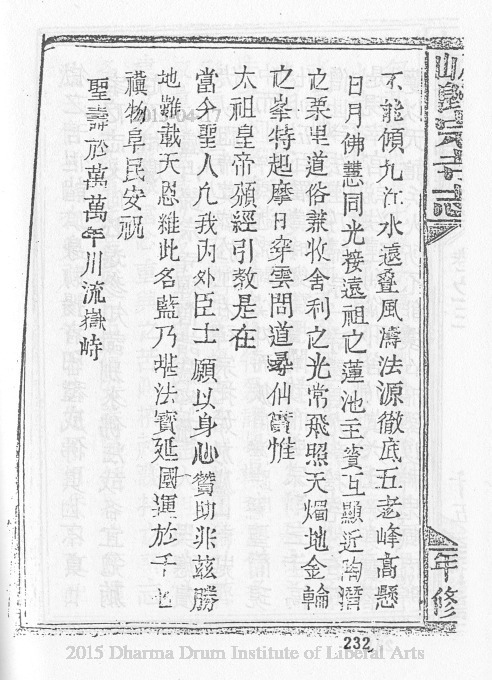 不能傾九江水遠叠風濤法源徹底五老峰高懸
日月佛慧同光接遠祖之蓮池主賓互顯近陶潛
之栗里道俗兼收舍利之光常飛照天燭地金輪
之峯特起摩日穿雲問道尋仙實惟
太祖皇帝頒經引教是在
當今聖人凡我內外臣士願以身心贊助非兹勝
地難載天恩維此名藍乃堪法寶延國運於千
物阜民安祝
聖壽於萬萬年川流嶽峙
年修
232
2015 Dharma Drum Institute of Liberal Arts